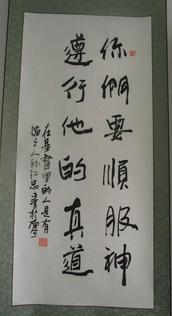 你們要順服神
遵行他的真道
在基督里的人是有
福之人